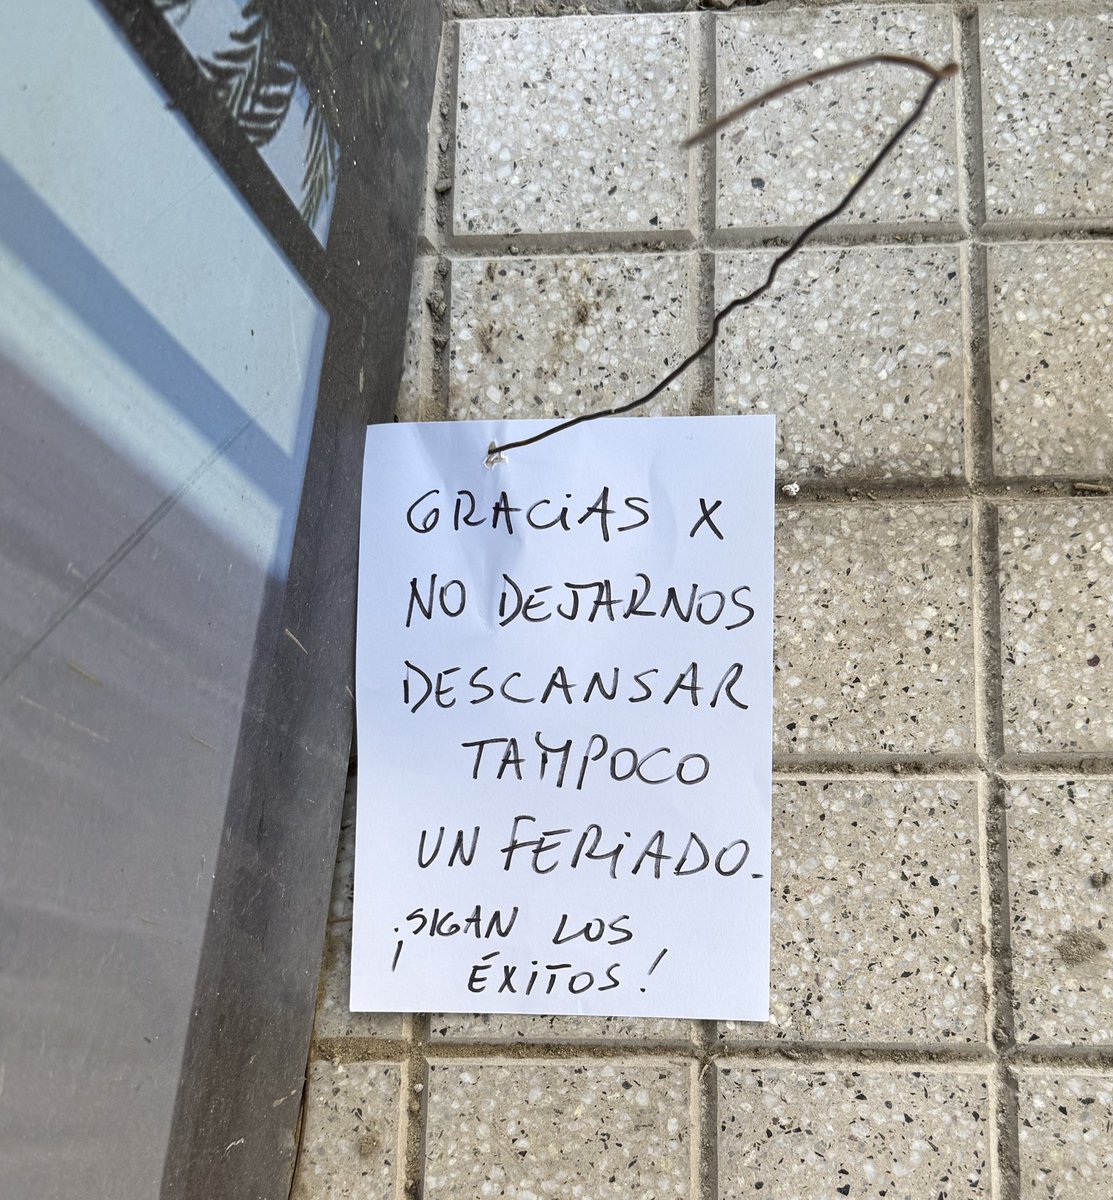 GRACIAS X
NO DEJARNOS
DESCANSAR
TAMPOCO
UN FERIADO.
¡SIGAN LOS
ÉXITOS!